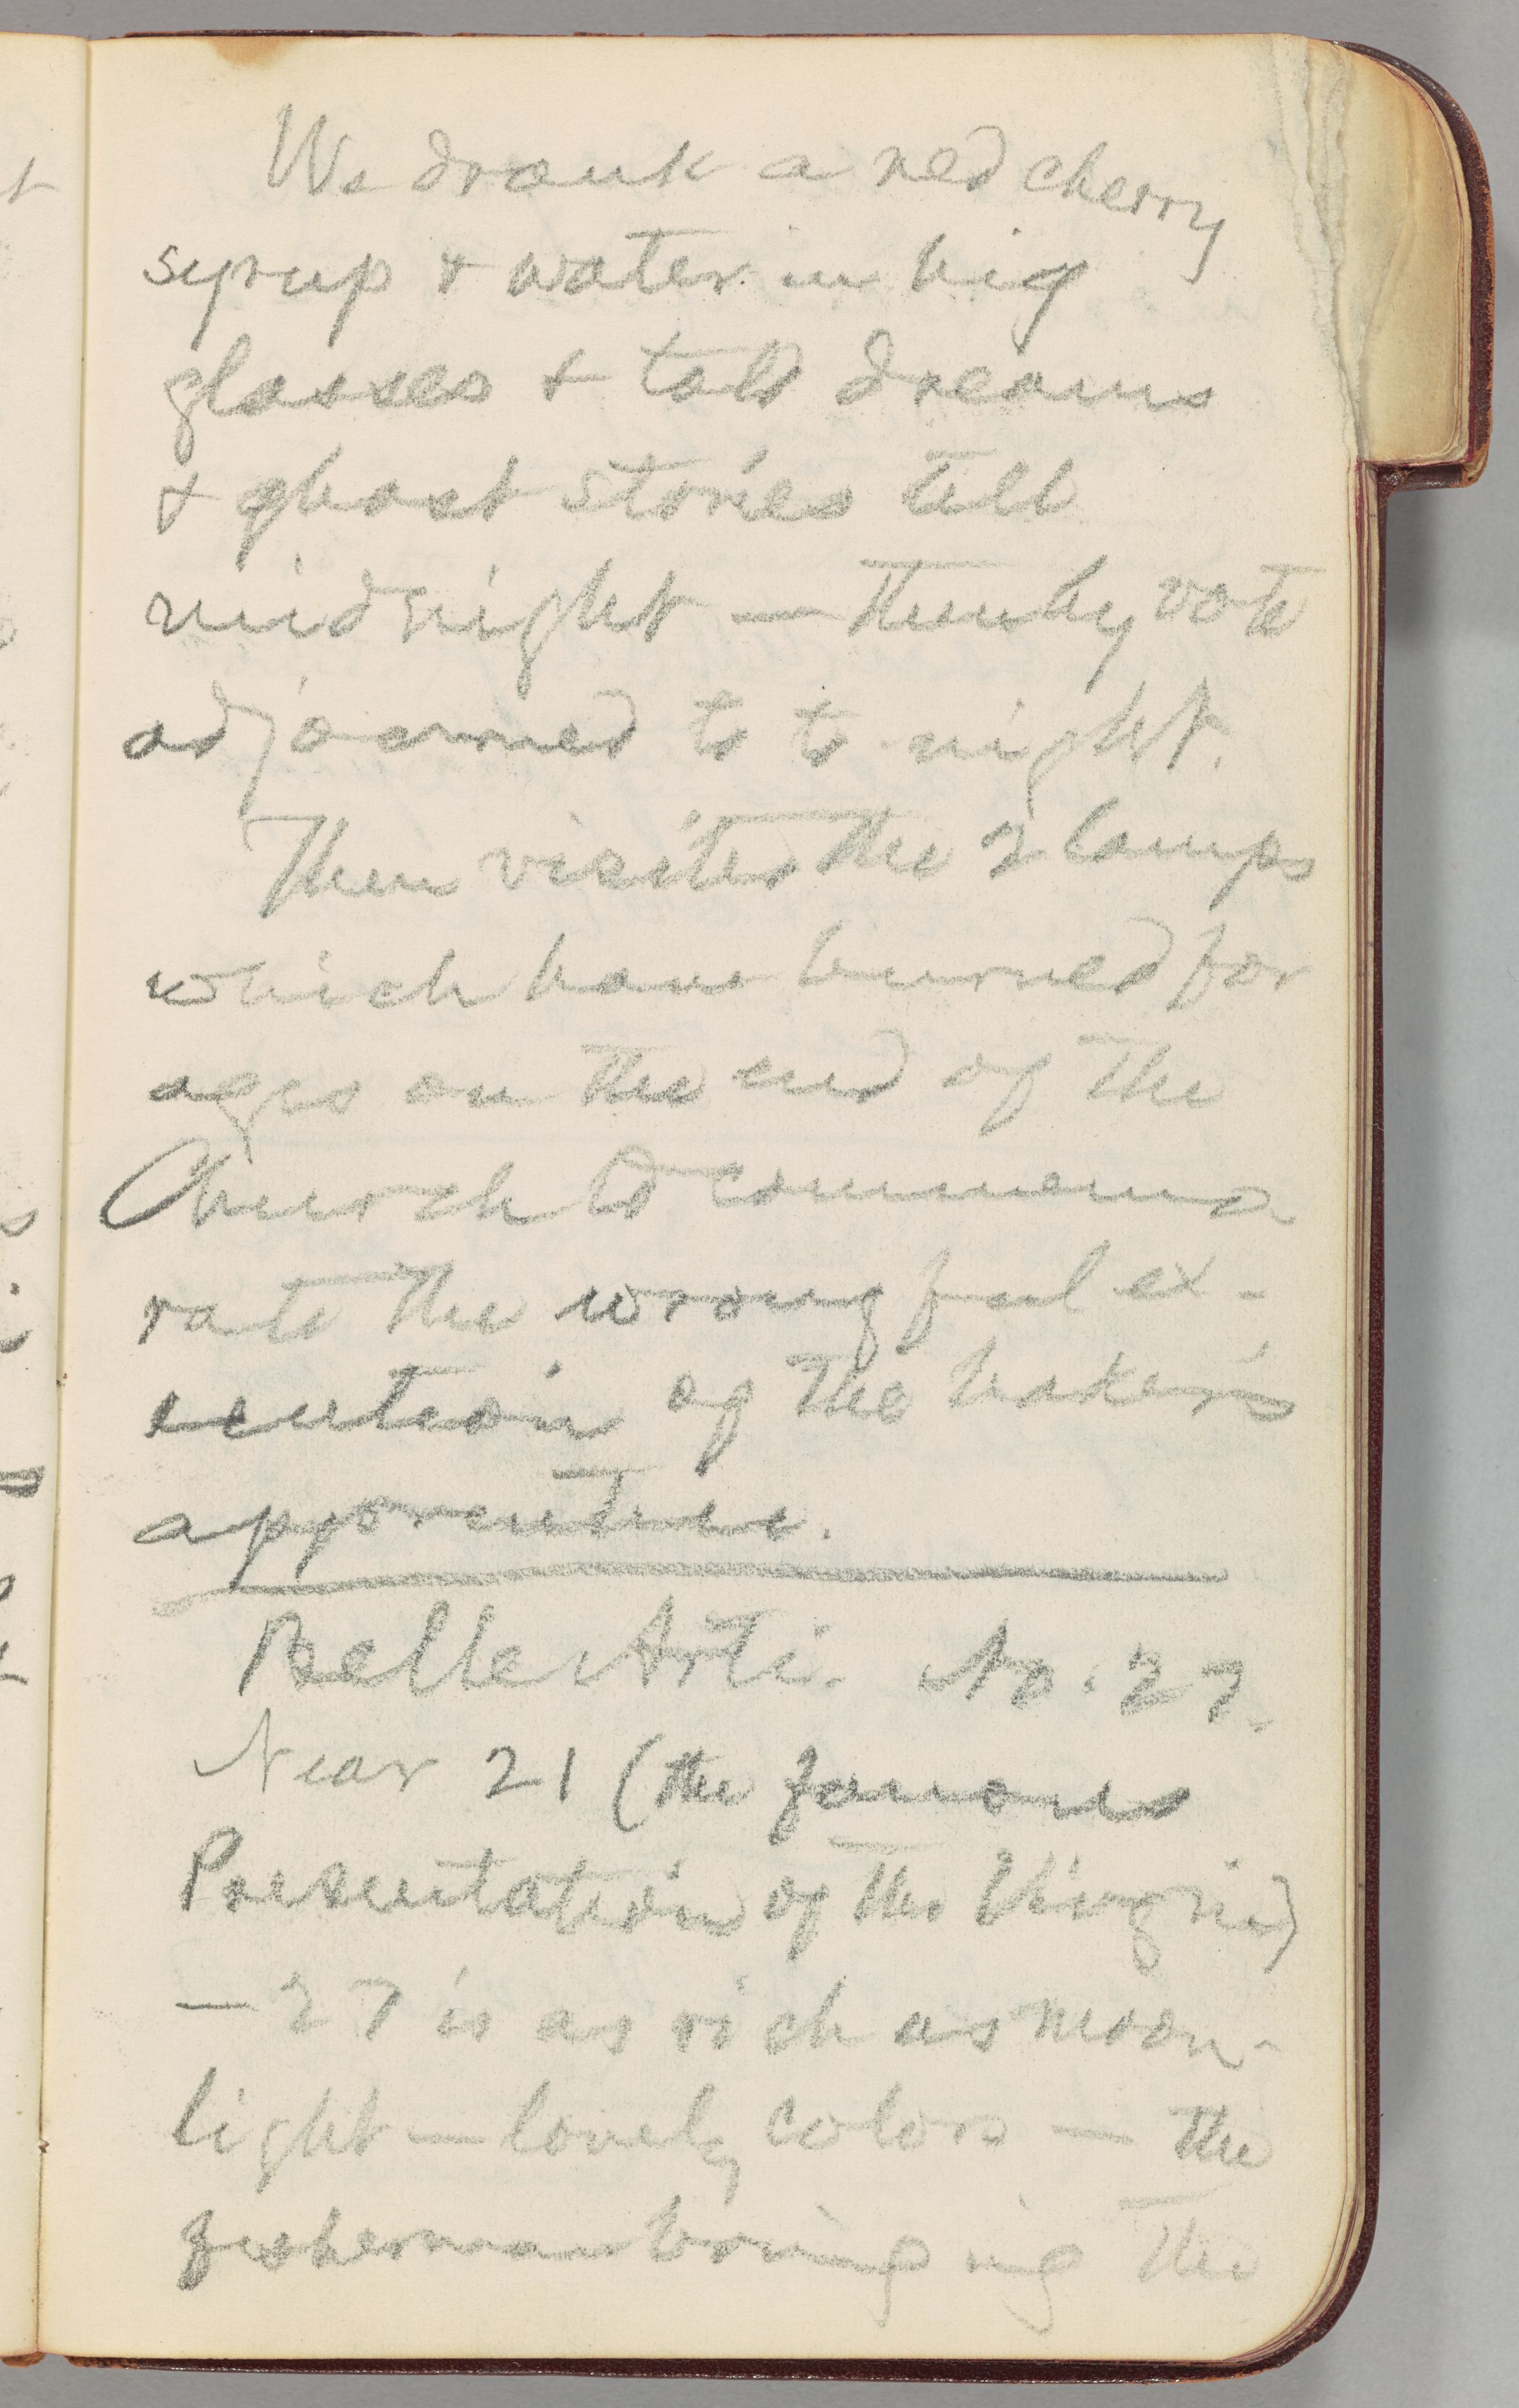 We drank a red cherry
syrup & water in big
glasses & told dreams
& ghost stories till
midnight — then by vote
adjourned to to night.
Then visited the 2 lamps
which have burned for
ages on the end of the
Church to commemo
rate the wrongful ex-
ecution of the baker's
apprentice.
Belle Arti. No. 27.
Near 21 (the famous
Presentation of the Virgin)
— 27 is as rich as moon-
light — lovely colors — the
fisherman bringing the